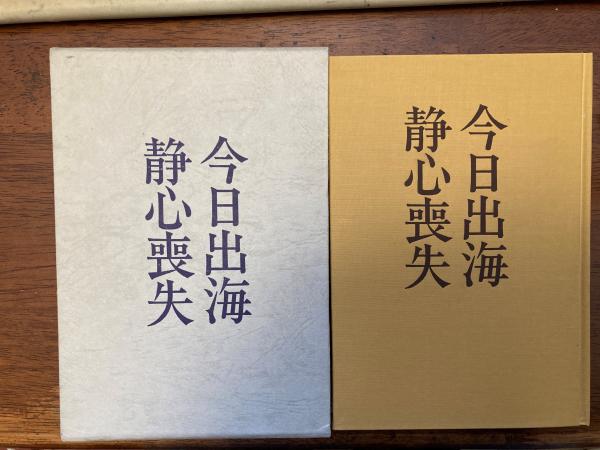 今日出海
静心喪失
今日出海
静心喪失